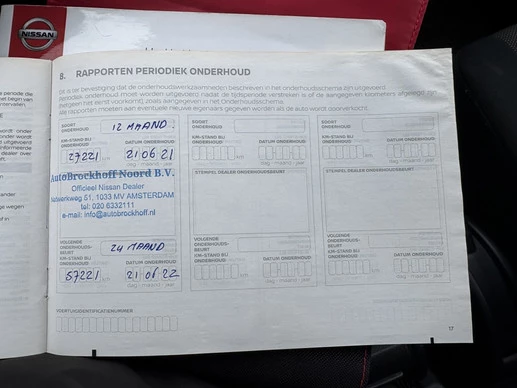 NISSAN
8. RAPPORTEN PERIODIEK ONDERHOUD
Dit is ter bevestiging dat de onderhoudswerkzaamheden beschreven in het onderhoudsschema zijn uitgevoerd.
Periodiek onderhoud moet worden uitgevoerd, nadat de tijdsperiode verstreken is of de aangegeven kilometers afgelegd zijn
(hetgeen het eerst voorkomt), zoals aangegeven in het Onderhoudsschema.
die rapporten moeten aan eventuele nieuwe eigenaars gegeven worden als de auto wordt doorverkocht.
SOORT
ONDERHOUD
12 MAAND.
KM-STAND BIJ
ONDERHOUD
DATUM ONDERHOUD
27221 km 21 06 21
dag maand jaar
AutoBrockhoff Noord B.V.
Officieel Nissan Dealer
51, 1033 MV AMSTERDAM
tel: 020 6332111
e-mail: info@autobrockhoff.nl
VOLGENDE
ONDERHOUDS-
BEURT
24 MAAND
KM-STAND BIJ
ONDERHOUD
DATUM ONDERHOUD
57221 km 21 06 22
dag maand jaar
SOORT
ONDERHOUD
KM-STAND BIJ
ONDERHOUD
DATUM ONDERHOUD
km
dag maand jaar
STEMPEL DEALER ONDERHOUDSBEURT
VOLGENDE
ONDERHOUDS-
BEURT
KM-STAND BIJ
ONDERHOUD
DATUM ONDERHOUD
km
dag maand jaar
SOORT
ONDERHOUD
KM-STAND BIJ
ONDERHOUD
DATUM ONDERHOUD
km
dag maand jaar
STEMPEL DEALER ONDERHOUDSBEURT
VOLGENDE
ONDERHOUDS-
BEURT
KM-STAND BIJ
ONDERHOUD
DATUM ONDERHOUD
km
dag maand jaar
VOERTUIGIDENTIFICATIENUMMER
17